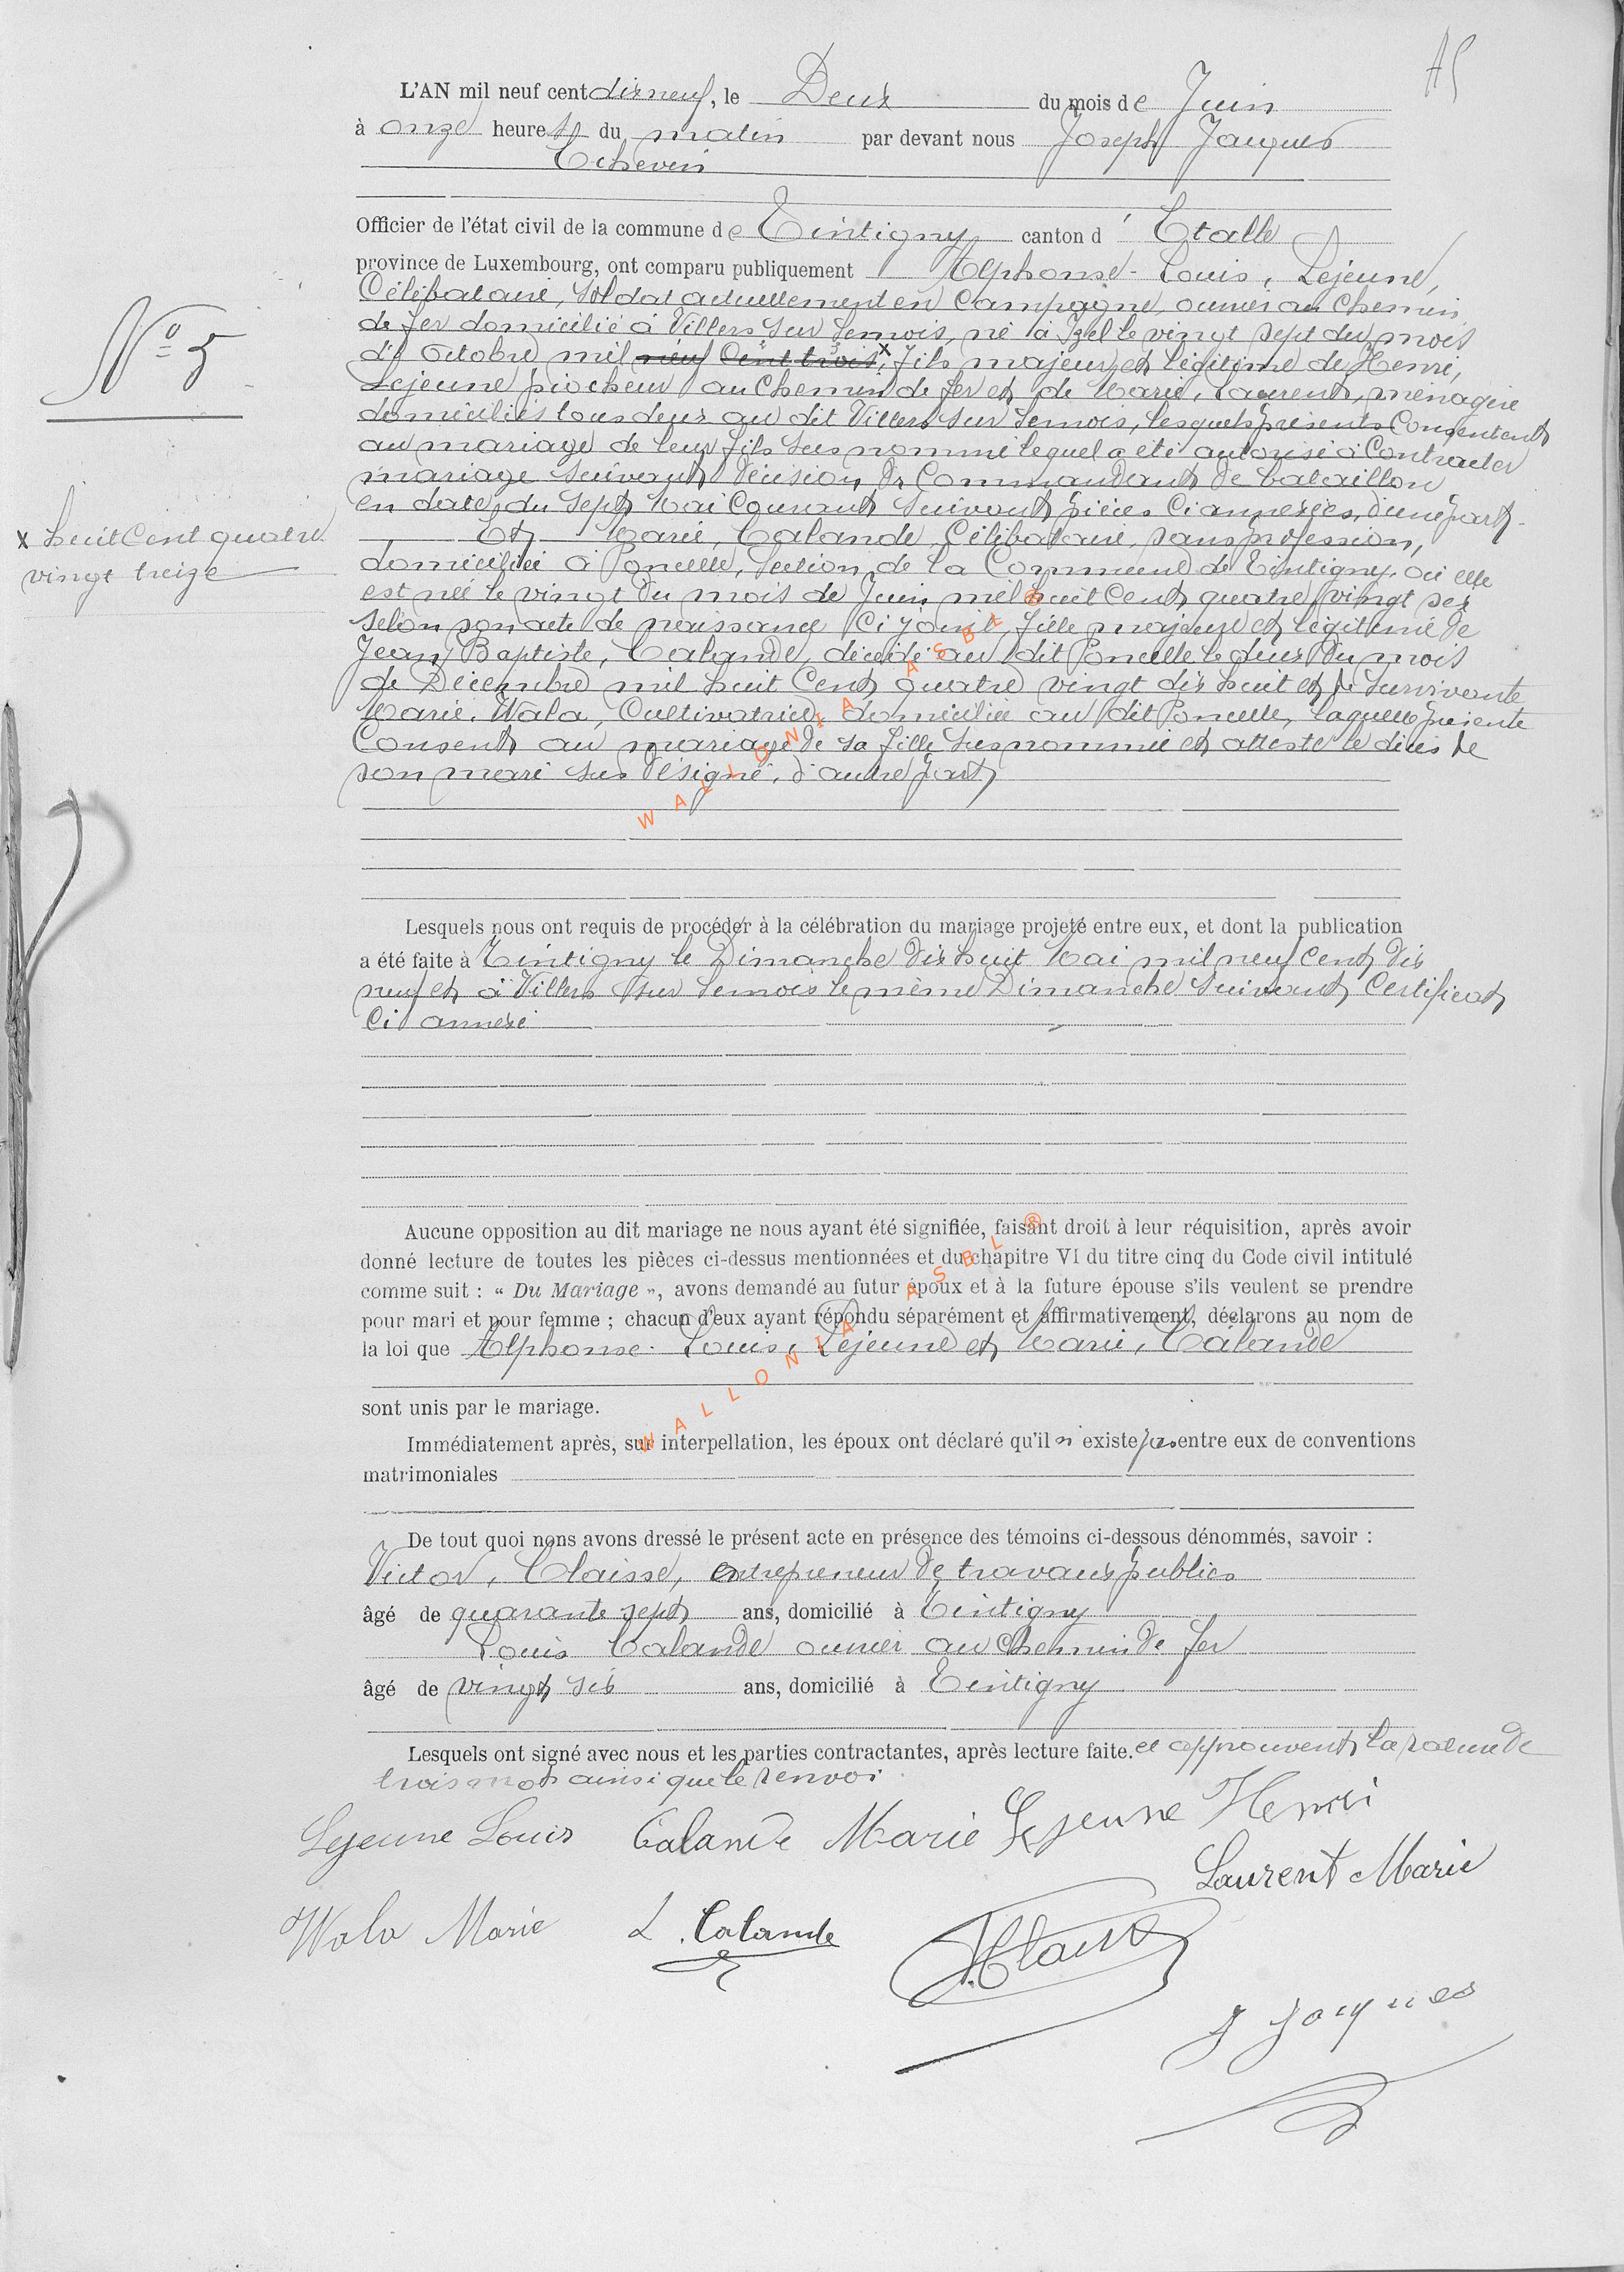 A5
L'AN mil neuf cent dix neuf, le Deux du mois de Juin
à onze heures du matin par devant nous Joseph Jacques
Echevin
Officier de l'état civil de la commune de Tintigny canton d' Etalle
province de Luxembourg, ont comparu publiquement Alphonse-Louis, Lejeune,
Célibataire, Soldat actuellement en Campagne, ouvrier au Chemin
de fer domicilié à Villers sur Semois, né à Izel le vingt sept du mois
d' Octobre mil neuf Cent trois x, fils majeur et légitime de Henri,
Lejeune piocheur au Chemin de fer et de Marie, Laurent, ménagère
domiciliés tous deux au dit Villers sur Semois, lesquels présents Consentent
au mariage de leur fils sus nommé lequel a été autorisé à Contracter
mariage suivant décision du Commandant de bataillon
en date du Sept Mai Courant suivant pièces Ci annexées, d'une part.
Et Marie, Calande, Célibataire, sans profession,
domiciliée à Poncelle, Section de la Commune de Tintigny, où elle
est née le vingt du mois de Juin mil huit Cent quatre vingt six
selon son acte de naissance Ci joint, fille majeure et légitime de
Jean Baptiste, Calande, décédé au dit Poncelle le deux du mois
de Décembre mil huit Cent quatre vingt dix huit et de survivante
Marie, Wala, Cultivatrice, domiciliée au dit Poncelle, laquelle présente
Consent au mariage de sa fille sus nommée et atteste le décès de
son mari sus désigné, d'autre part,
No 5
x huit Cent quatre
vingt treize
WALLONIA ASBL ®
Lesquels nous ont requis de procéder à la célébration du mariage projeté entre eux, et dont la publication
a été faite à Tintigny le Dimanche dix huit Mai mil neuf Cent dix
neuf et à Villers sur Semois le même Dimanche suivant Certificat
Ci annexé
Aucune opposition au dit mariage ne nous ayant été signifiée, faisant droit à leur réquisition, après avoir
donné lecture de toutes les pièces ci-dessus mentionnées et du chapitre VI du titre cinq du Code civil intitulé
comme suit : « Du Mariage », avons demandé au futur époux et à la future épouse s'ils veulent se prendre
pour mari et pour femme ; chacun d'eux ayant répondu séparément et affirmativement, déclarons au nom de
la loi que Alphonse-Louis, Lejeune et Marie, Calande
WALLONIA ASBL ®
sont unis par le mariage.
Immédiatement après, sur interpellation, les époux ont déclaré qu'il n' existe pas entre eux de conventions
matrimoniales
De tout quoi nous avons dressé le présent acte en présence des témoins ci-dessous dénommés, savoir :
Victor, Claisse, entrepreneur de travaux publics
âgé de quarante sept ans, domicilié à Tintigny
Louis Calande ouvrier au chemin de fer
âgé de vingt six ans, domicilié à Tintigny
Lesquels ont signé avec nous et les parties contractantes, après lecture faite. et approuvent la rature de
trois mots ainsi que le renvoi.
Lejeune Louis Calande Marie Lejeune Henri
Laurent Marie
Wala Marie L. Calande V. Claisse
J Jacques